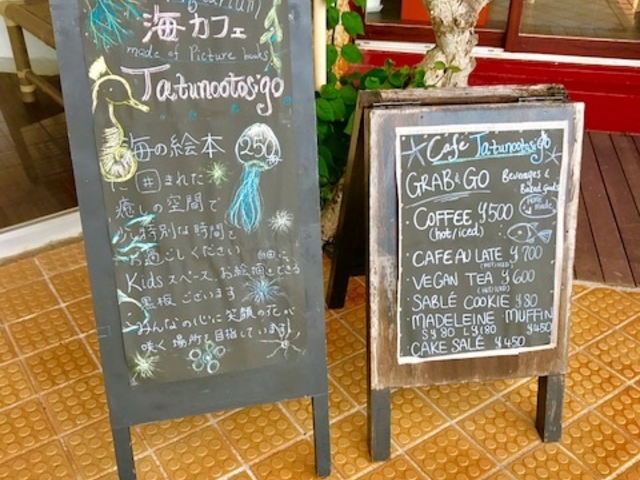 海カフェ
made of Picture books
Tatunootosigo
海の絵本
250
に囲まれた
癒しの空間で
特別な時間を
お過ごしください
Kidsスペース、お絵描きできる
黒板ございます
みんなの心に笑顔の花が
咲く場所を目指しています♪
Café Tatunootosigo
GRAB & GO
Beverages &
Baked goods
Home
made
COFFEE ¥500
(hot/iced)
CAFE AU LATE ¥700
(HOT/ICED)
VEGAN TEA ¥600
(HOT/ICED)
SABLÉ COOKIE ¥80
MADELEINE MUFFIN
S¥80 L¥180 ¥450
CAKE SALÉ ¥450